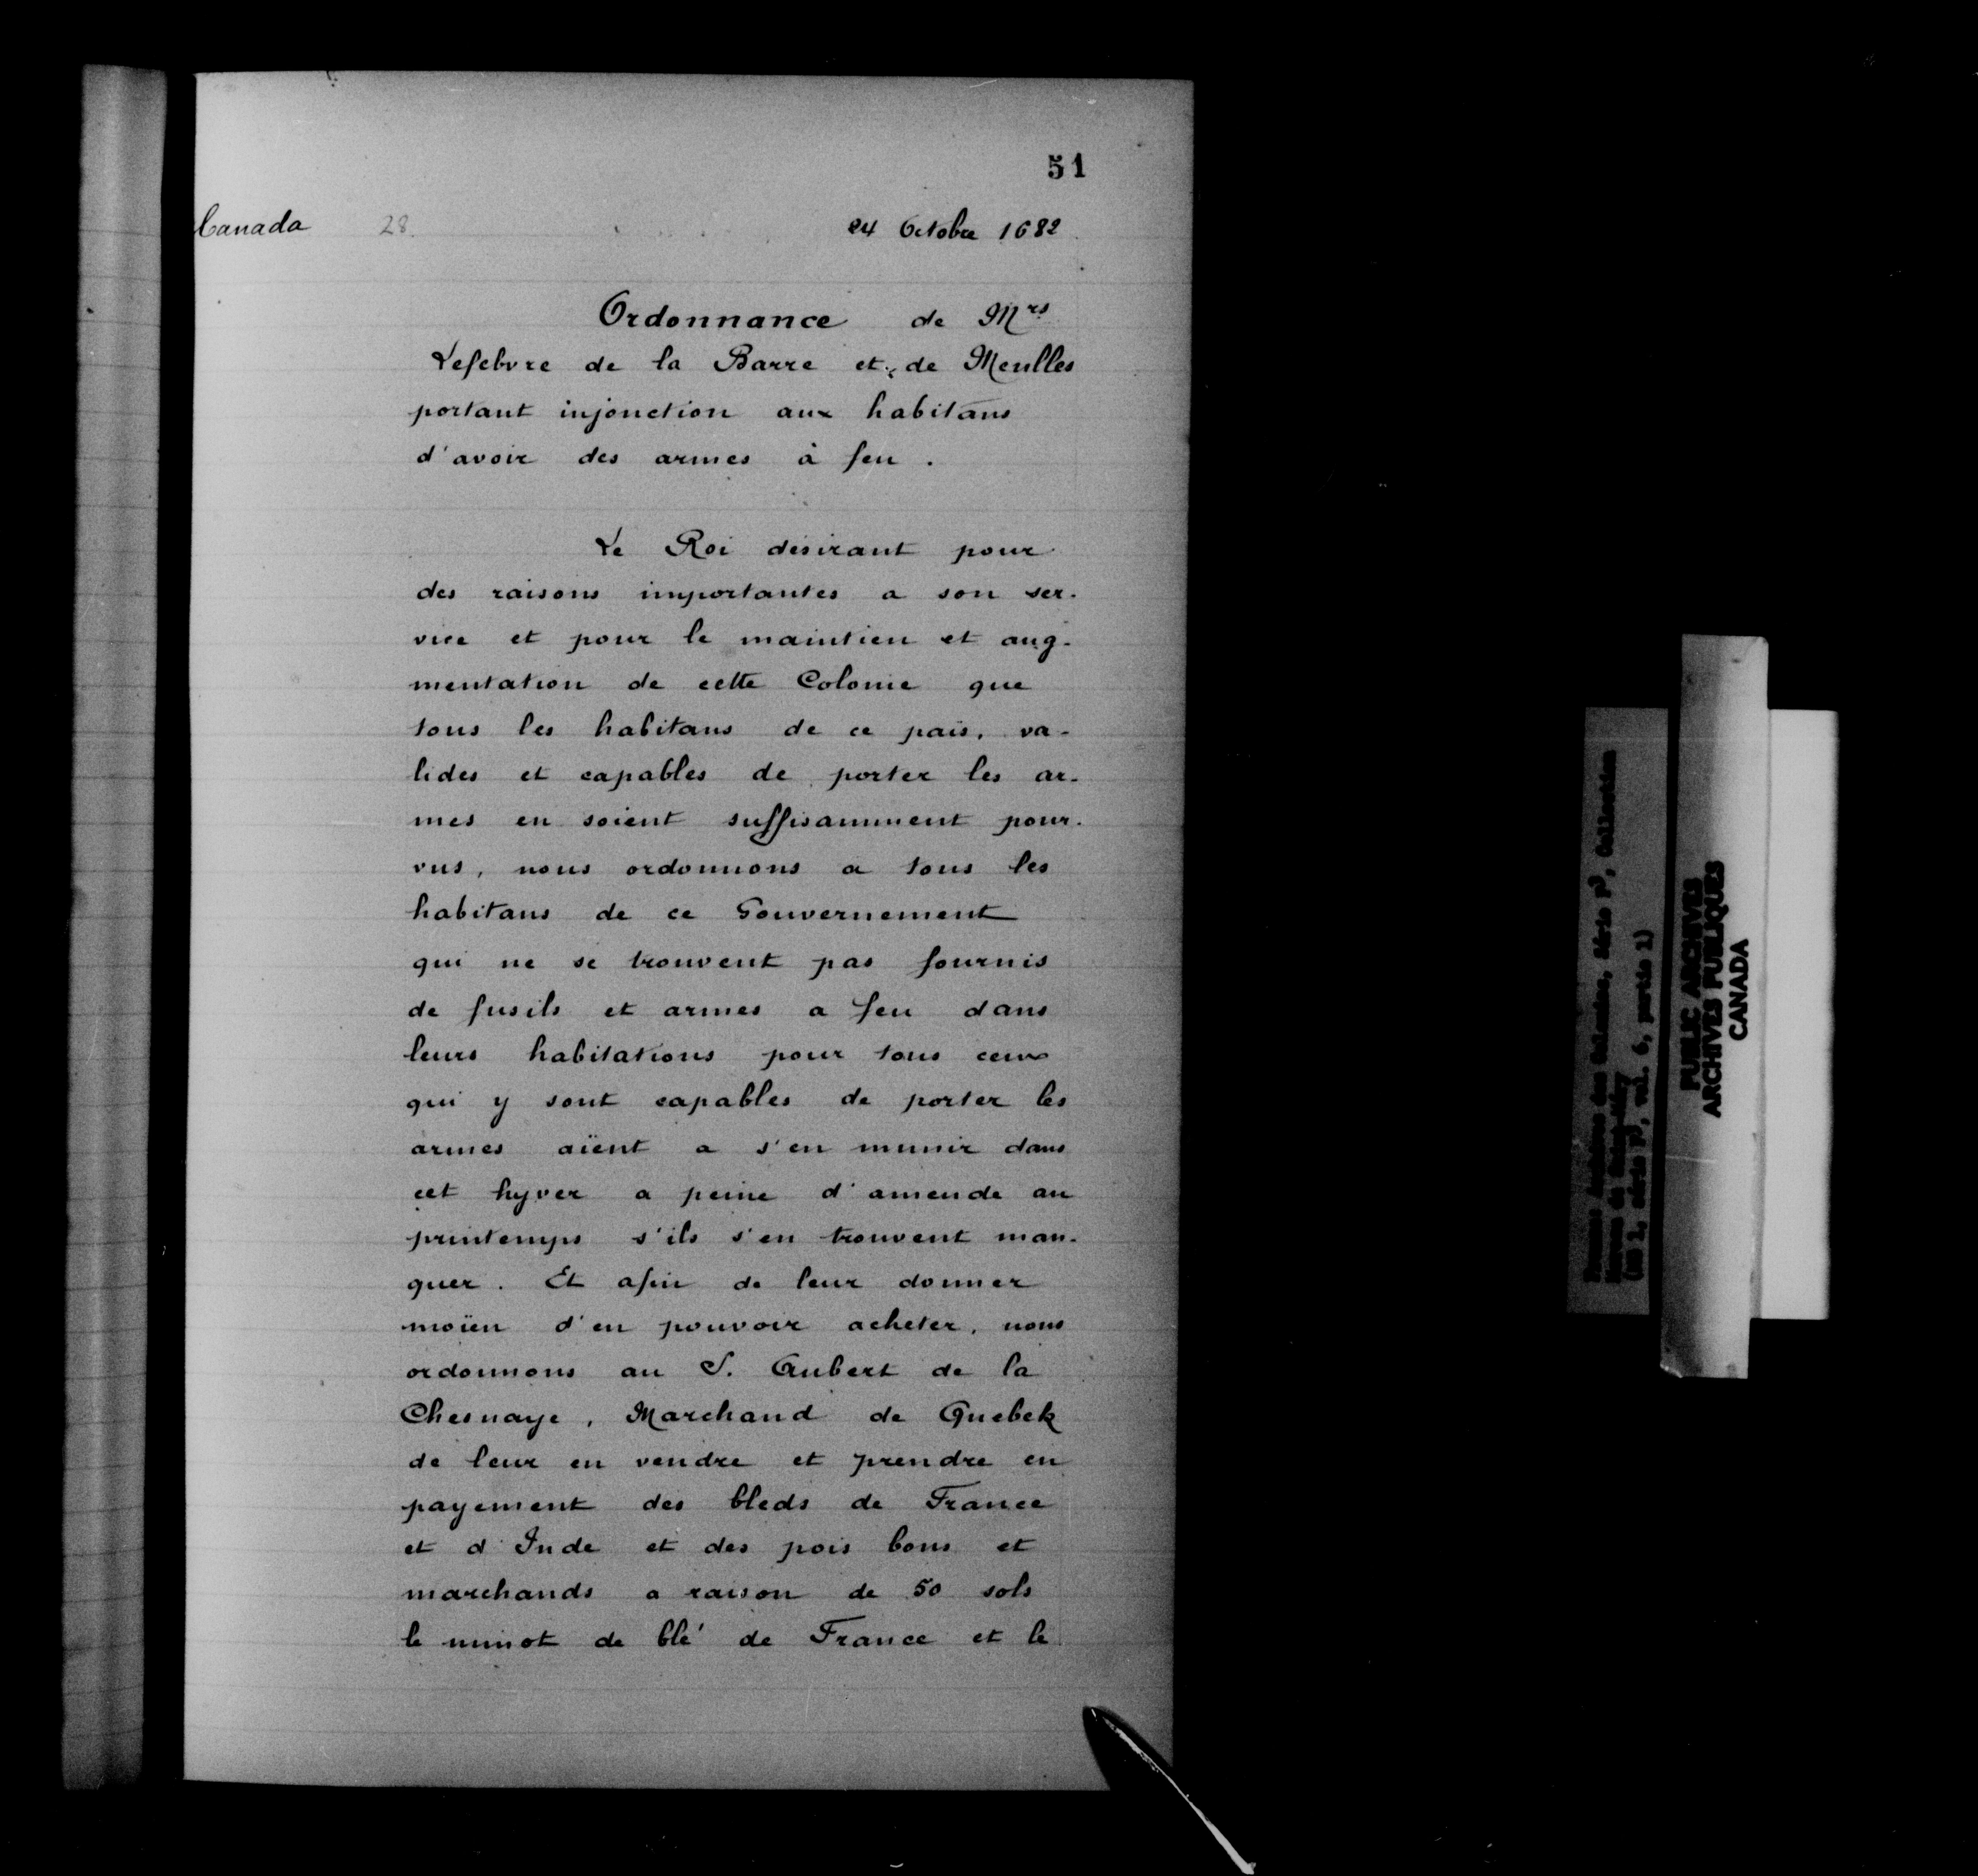 51
Canada 28. 24 Octobre 1682
Ordonnance de Mrs
Lefebvre de la Barre et de Meulles
portant injonction aux habitans
d'avoir des armes à feu.
Le Roi désirant pour
des raisons importantes a son ser-
vice et pour le maintien et aug-
mentation de cette Colonie que
tous les habitans de ce païs, va-
lides et capables de porter les ar-
mes en soient suffisamment pour-
vus, nous ordonnons a tous les
habitans de ce Gouvernement
qui ne se trouvent pas fournis
de fusils et armes a feu dans
leurs habitations pour tous ceux
qui y sont capables de porter les
armes aïent a s'en munir dans
cet hyver a peine d'amende au
printemps s'ils s'en trouvent man-
quer. Et afin de leur donner
moïen d'en pouvoir acheter, nous
ordonnons au S. Aubert de la
Chesnaye, Marchand de Quebek
de leur en vendre et prendre en
payement des bleds de France
et d'Inde et des pois bons et
marchands a raison de 50 sols
le minot de blé de France et le
PUBLIC ARCHIVES
ARCHIVES PUBLIQUES
CANADA
Archives des Colonies, Série F3, Collection
Moreau de
(MG 1, série F3, vol. 6, partie 1)